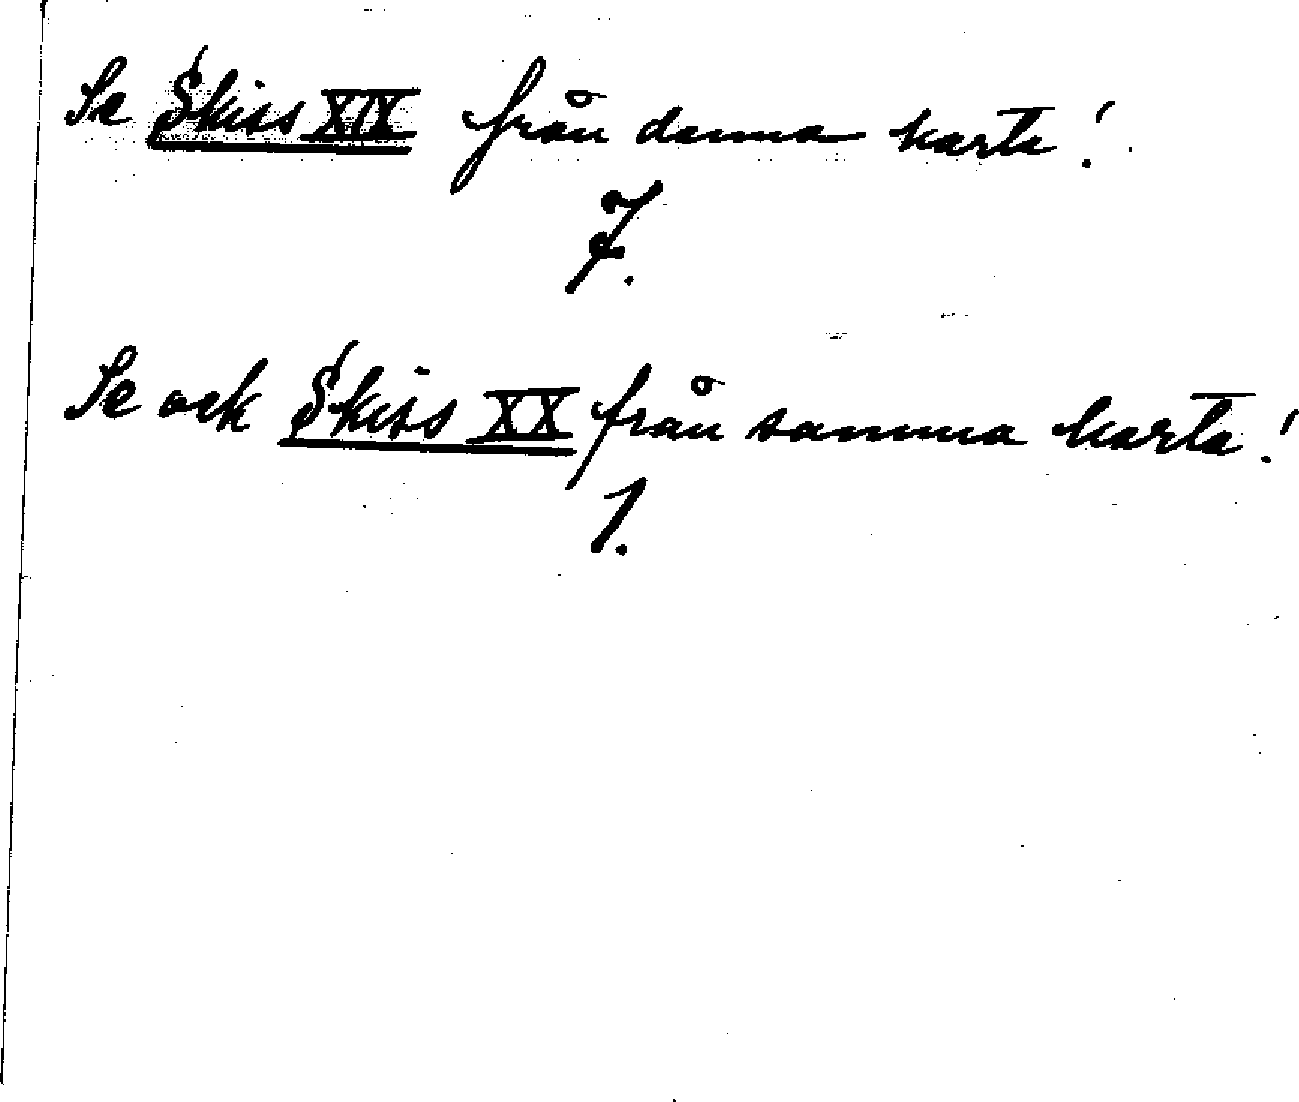 Se Skiss XIX från denna karta!
7.
Se ock Skiss XX från samma karta!
1.